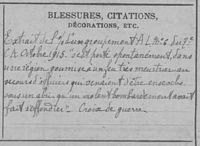 BLESSURES, CITATIONS,
DÉCORATIONS, ETC.
Extrait de l'o/ du groupement A.L. N° 6 du 7e
C.A. Octobre 1915. s'est porté spontanément, dans
une région soumise à un feu très meurtrier au
secours d'officiers qui venaient d'être ensevelis
sous un abri qu'un violent bombardement avait
fait s'effondrer. Croix de guerre.